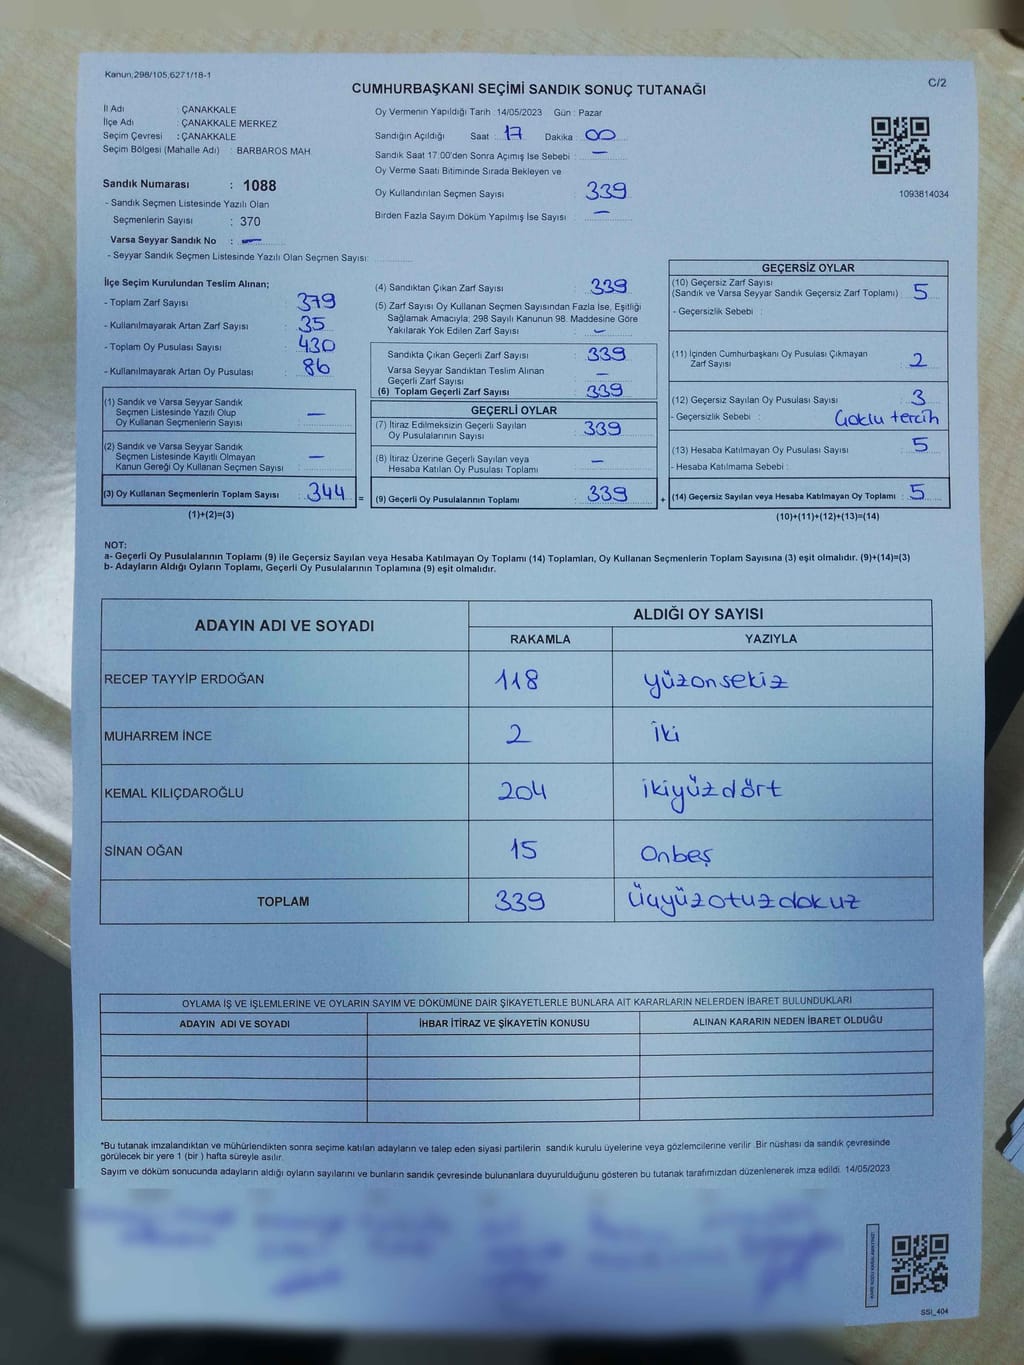 Kanun,298/105,6271/18-1
C/2
CUMHURBAŞKANI SEÇİMİ SANDIK SONUÇ TUTANAĞI
İl Adı : ÇANAKKALE
İlçe Adı : ÇANAKKALE MERKEZ
Seçim Çevresi : ÇANAKKALE
Seçim Bölgesi (Mahalle Adı) : BARBAROS MAH.
Sandık Numarası : 1088
- Sandık Seçmen Listesinde Yazılı Olan
Seçmenlerin Sayısı : 370
Varsa Seyyar Sandık No : —
- Seyyar Sandık Seçmen Listesinde Yazılı Olan Seçmen Sayısı:
Oy Vermenin Yapıldığı Tarih :14/05/2023 Gün : Pazar
Sandığın Açıldığı Saat : 17 Dakika : 00
Sandık Saat 17:00'den Sonra Açımış İse Sebebi : —
Oy Verme Saati Bitiminde Sırada Bekleyen ve
Oy Kullandırılan Seçmen Sayısı : 339
Birden Fazla Sayım Döküm Yapılmış İse Sayısı : —
1093814034
İlçe Seçim Kurulundan Teslim Alınan;
- Toplam Zarf Sayısı : 379
- Kullanılmayarak Artan Zarf Sayısı : 35
- Toplam Oy Pusulası Sayısı : 430
- Kullanılmayarak Artan Oy Pusulası : 86
(1) Sandık ve Varsa Seyyar Sandık
Seçmen Listesinde Yazılı Olup
Oy Kullanan Seçmenlerin Sayısı : —
(2) Sandık ve Varsa Seyyar Sandık
Seçmen Listesinde Kayıtlı Olmayan
Kanun Gereği Oy Kullanan Seçmen Sayısı : —
(3) Oy Kullanan Seçmenlerin Toplam Sayısı : 344 =
(1)+(2)=(3)
(4) Sandıktan Çıkan Zarf Sayısı : 339
(5) Zarf Sayısı Oy Kullanan Seçmen Sayısından Fazla İse, Eşitliği
Sağlamak Amacıyla; 298 Sayılı Kanunun 98. Maddesine Göre
Yakılarak Yok Edilen Zarf Sayısı : —
Sandıkta Çıkan Geçerli Zarf Sayısı : 339
Varsa Seyyar Sandıktan Teslim Alınan
Geçerli Zarf Sayısı : —
(6) Toplam Geçerli Zarf Sayısı : 339
GEÇERLİ OYLAR
(7) İtiraz Edilmeksizin Geçerli Sayılan
Oy Pusulalarının Sayısı : 339
(8) İtiraz Üzerine Geçerli Sayılan veya
Hesaba Katılan Oy Pusulası Toplamı : —
(9) Geçerli Oy Pusulalarının Toplamı : 339 +
GEÇERSİZ OYLAR
(10) Geçersiz Zarf Sayısı
(Sandık ve Varsa Seyyar Sandık Geçersiz Zarf Toplamı) : 5
- Geçersizlik Sebebi :
(11) İçinden Cumhurbaşkanı Oy Pusulası Çıkmayan
Zarf Sayısı : 2
(12) Geçersiz Sayılan Oy Pusulası Sayısı : 3
- Geçersizlik Sebebi : Çoklu tercih
(13) Hesaba Katılmayan Oy Pusulası Sayısı : 5
- Hesaba Katılmama Sebebi :
(14) Geçersiz Sayılan veya Hesaba Katılmayan Oy Toplamı : 5
(10)+(11)+(12)+(13)=(14)
NOT:
a- Geçerli Oy Pusulalarının Toplamı (9) ile Geçersiz Sayılan veya Hesaba Katılmayan Oy Toplamı (14) Toplamları, Oy Kullanan Seçmenlerin Toplam Sayısına (3) eşit olmalıdır. (9)+(14)=(3)
b- Adayların Aldığı Oyların Toplamı, Geçerli Oy Pusulalarının Toplamına (9) eşit olmalıdır.
ADAYIN ADI VE SOYADI
ALDIĞI OY SAYISI
RAKAMLA YAZIYLA
RECEP TAYYİP ERDOĞAN 118 yüzonsekiz
MUHARREM İNCE 2 iki
KEMAL KILIÇDAROĞLU 204 ikiyüzdört
SİNAN OĞAN 15 Onbeş
TOPLAM 339 Üçyüzotuzdokuz
OYLAMA İŞ VE İŞLEMLERİNE VE OYLARIN SAYIM VE DÖKÜMÜNE DAİR ŞİKAYETLERLE BUNLARA AİT KARARLARIN NELERDEN İBARET BULUNDUKLARI
ADAYIN ADI VE SOYADI İHBAR İTİRAZ VE ŞİKAYETİN KONUSU ALINAN KARARIN NEDEN İBARET OLDUĞU
*Bu tutanak imzalandıktan ve mühürlendikten sonra seçime katılan adayların ve talep eden siyasi partilerin sandık kurulu üyelerine veya gözlemcilerine verilir. Bir nüshası da sandık çevresinde
görülecek bir yere 1 (bir) hafta süreyle asılır.
Sayım ve döküm sonucunda adayların aldığı oyların sayılarını ve bunların sandık çevresinde bulunanlara duyurulduğunu gösteren bu tutanak tarafımızdan düzenlenerek imza edildi. 14/05/2023
SSI_404